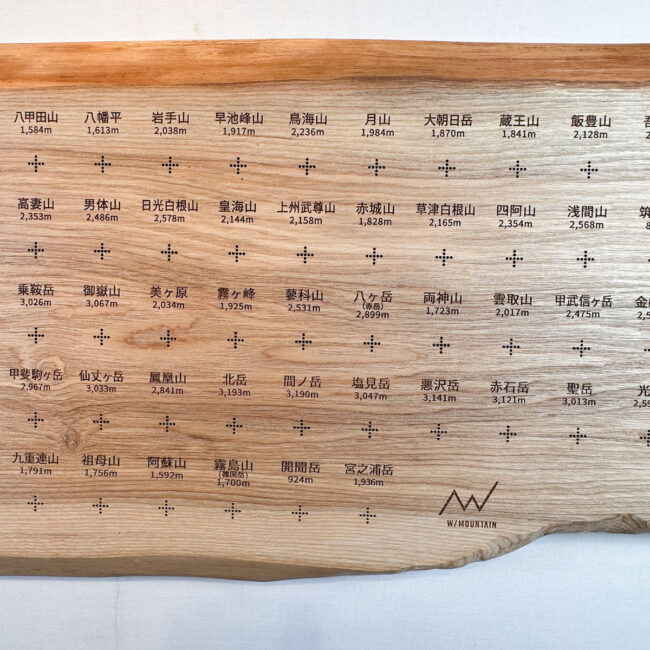 八甲田山 八幡平 岩手山 早池峰山 鳥海山 月山 大朝日岳 蔵王山 飯豊山
1,584m 1,613m 2,038m 1,917m 2,236m 1,984m 1,870m 1,841m 2,128m
高妻山 男体山 日光白根山 皇海山 上州武尊山 赤城山 草津白根山 四阿山 浅間山
2,353m 2,486m 2,578m 2,144m 2,158m 1,828m 2,165m 2,354m 2,568m
乗鞍岳 御嶽山 美ヶ原 霧ヶ峰 蓼科山 八ヶ岳 両神山 雲取山 甲武信ヶ岳
(赤岳)
3,026m 3,067m 2,034m 1,925m 2,531m 2,899m 1,723m 2,017m 2,475m
甲斐駒ヶ岳 仙丈ヶ岳 鳳凰山 北岳 間ノ岳 塩見岳 悪沢岳 赤石岳 聖岳
2,967m 3,033m 2,841m 3,193m 3,190m 3,047m 3,141m 3,121m 3,013m
九重連山 祖母山 阿蘇山 霧島山 開聞岳 宮之浦岳
(韓国岳)
1,791m 1,756m 1,592m 1,700m 924m 1,936m
W/MOUNTAIN